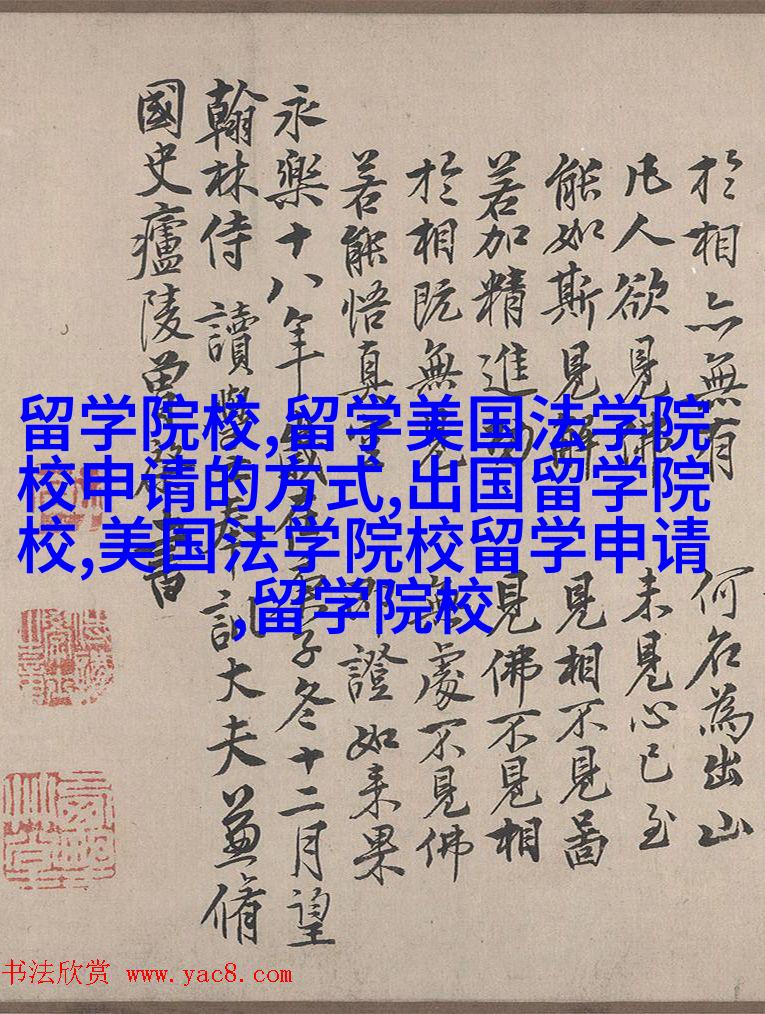 於相亦無有 何名為出山
凡人欲見佛 未見心已至
能如斯見解 見相不見啚
若加精進功 見佛不見相
於相既無見 無處不見佛
若能悟真空 即證如来果
永樂十八年歲在庚子冬十二月望
翰林侍讀學士奉訓大夫兼脩
國史廬陵曾棨書
留学院校,留学美国法学院
校申请的方式,出国留学院
校,美国法学院校留学申请
,留学院校
书法欣赏 www.yac8.com